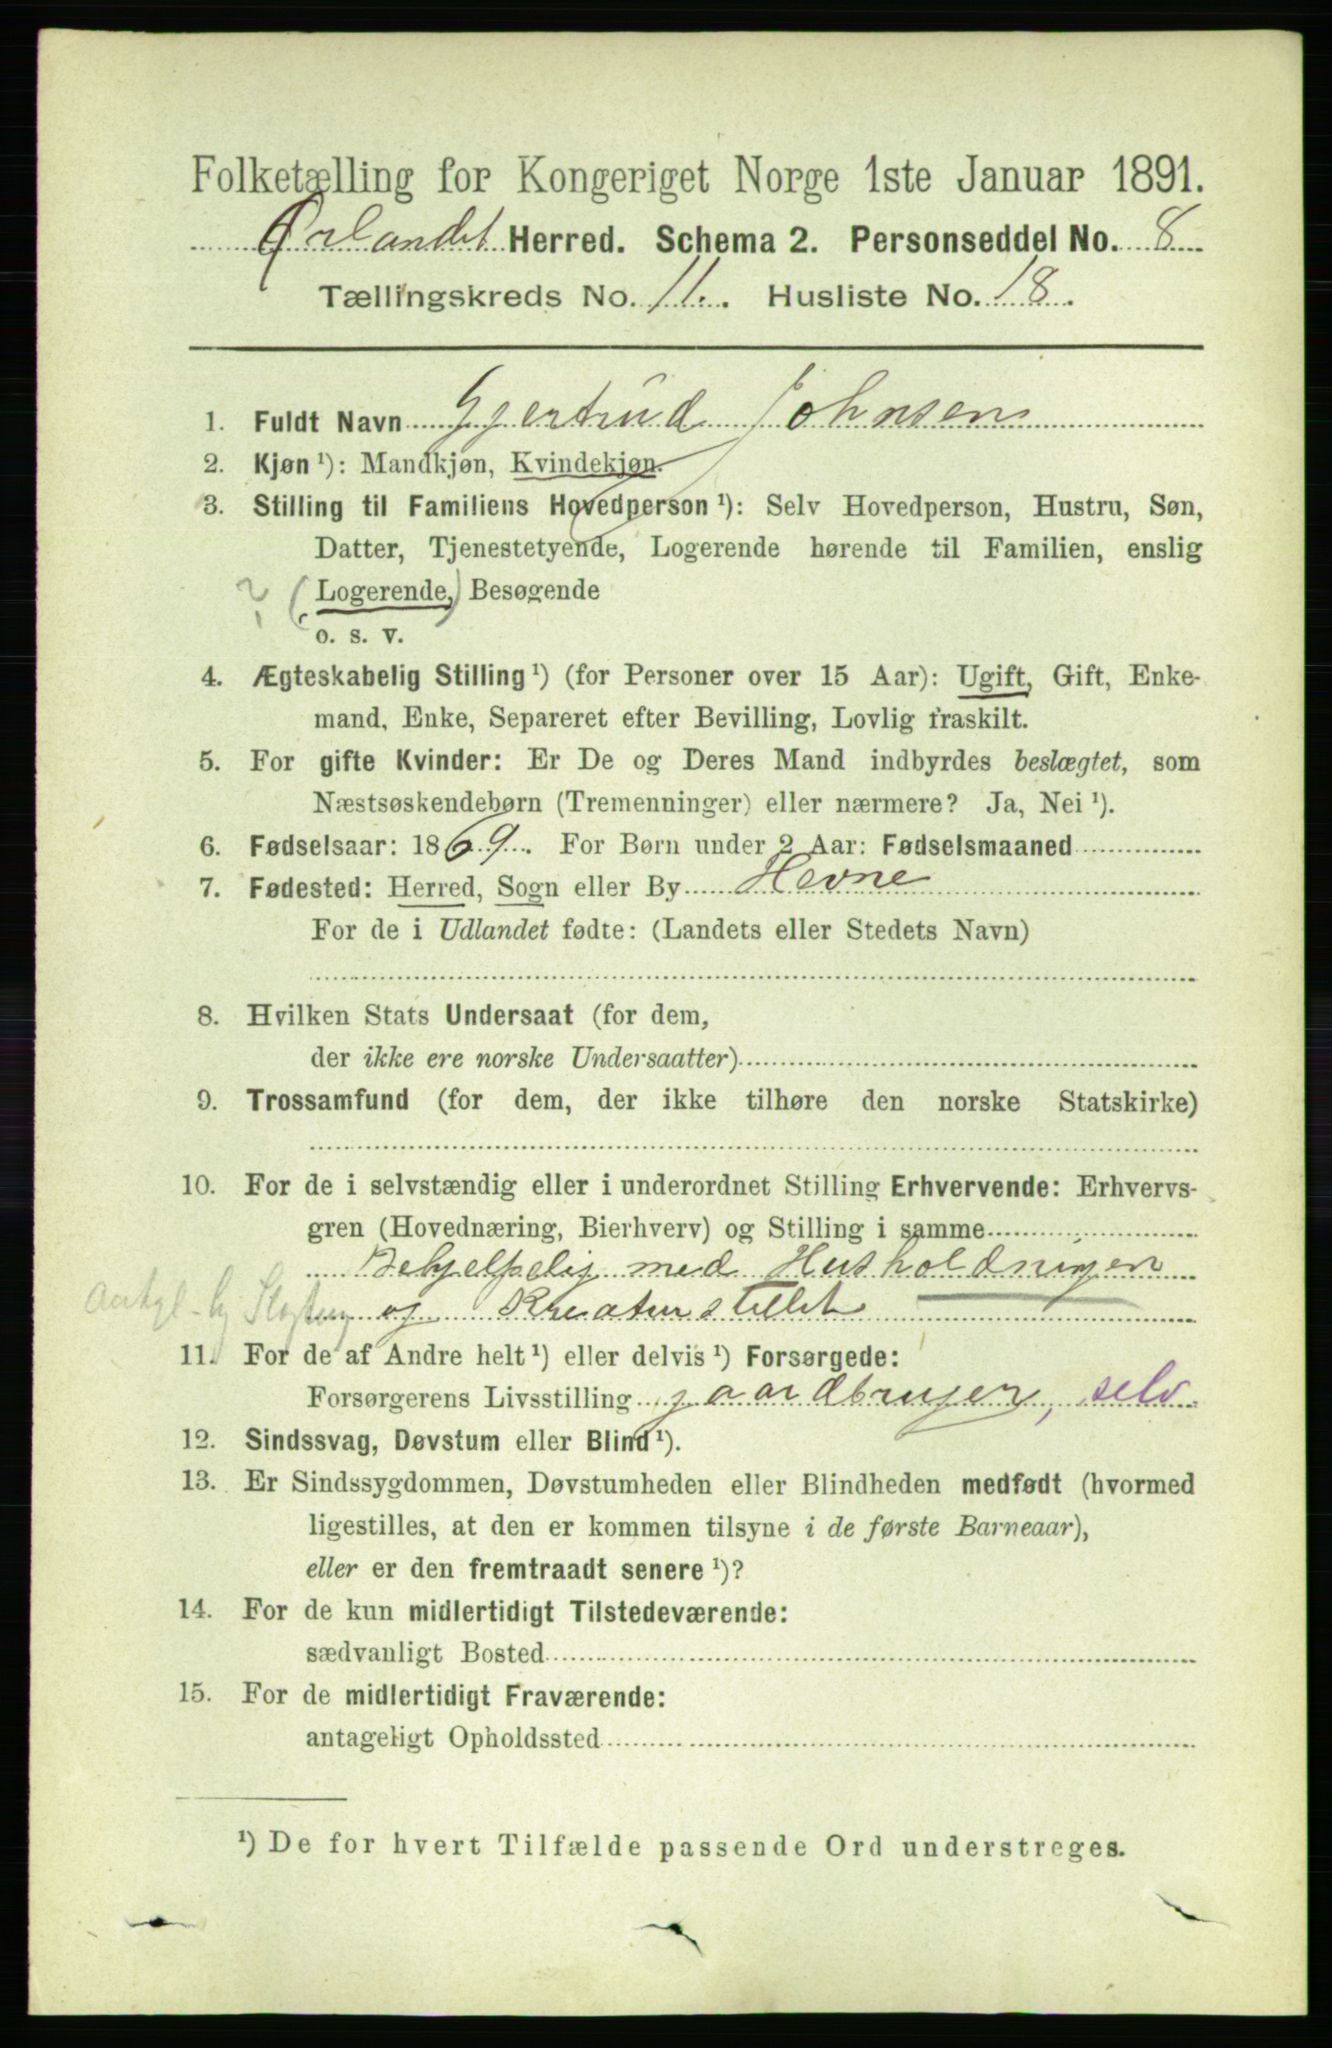 Folketælling for Kongeriget Norge 1ste Januar 1891.
Ørlandet Herred. Schema 2. Personseddel No. 8
Tællingskreds No. 11. Husliste No. 18.
1. Fuldt Navn Gjertrud Johnsen
2. Kjøn ¹): Mandkjøn, Kvindekjøn.
3. Stilling til Familiens Hovedperson ¹): Selv Hovedperson, Hustru, Søn,
Datter, Tjenestetyende, Logerende hørende til Familien, enslig
? (Logerende,) Besøgende
o. s. v.
4. Ægteskabelig Stilling ¹) (for Personer over 15 Aar): Ugift, Gift, Enke-
mand, Enke, Separeret efter Bevilling, Lovlig fraskilt.
5. For gifte Kvinder: Er De og Deres Mand indbyrdes beslægtet, som
Næstsøskendebørn (Tremenninger) eller nærmere? Ja, Nei ¹).
6. Fødselsaar: 1869. For Børn under 2 Aar: Fødselsmaaned
7. Fødested: Herred, Sogn eller By Hevne
For de i Udlandet fødte: (Landets eller Stedets Navn)
8. Hvilken Stats Undersaat (for dem,
der ikke ere norske Undersaatter)
9. Trossamfund (for dem, der ikke tilhøre den norske Statskirke)
10. For de i selvstændig eller i underordnet Stilling Erhvervende: Erhvervs-
gren (Hovednæring, Bierhverv) og Stilling i samme
Behjelpelig med Husholdningen
og Kreaturstellet
11. For de af Andre helt ¹) eller delvis ¹) Forsørgede:
Forsørgerens Livsstilling gaardbruger, selv
12. Sindssvag, Døvstum eller Blind ¹).
13. Er Sindssygdommen, Døvstumheden eller Blindheden medfødt (hvormed
ligestilles, at den er kommen tilsyne i de første Barneaar),
eller er den fremtraadt senere ¹)?
14. For de kun midlertidigt Tilstedeværende:
sædvanligt Bosted
15. For de midlertidigt Fraværende:
antageligt Opholdssted
¹) De for hvert Tilfælde passende Ord understreges.